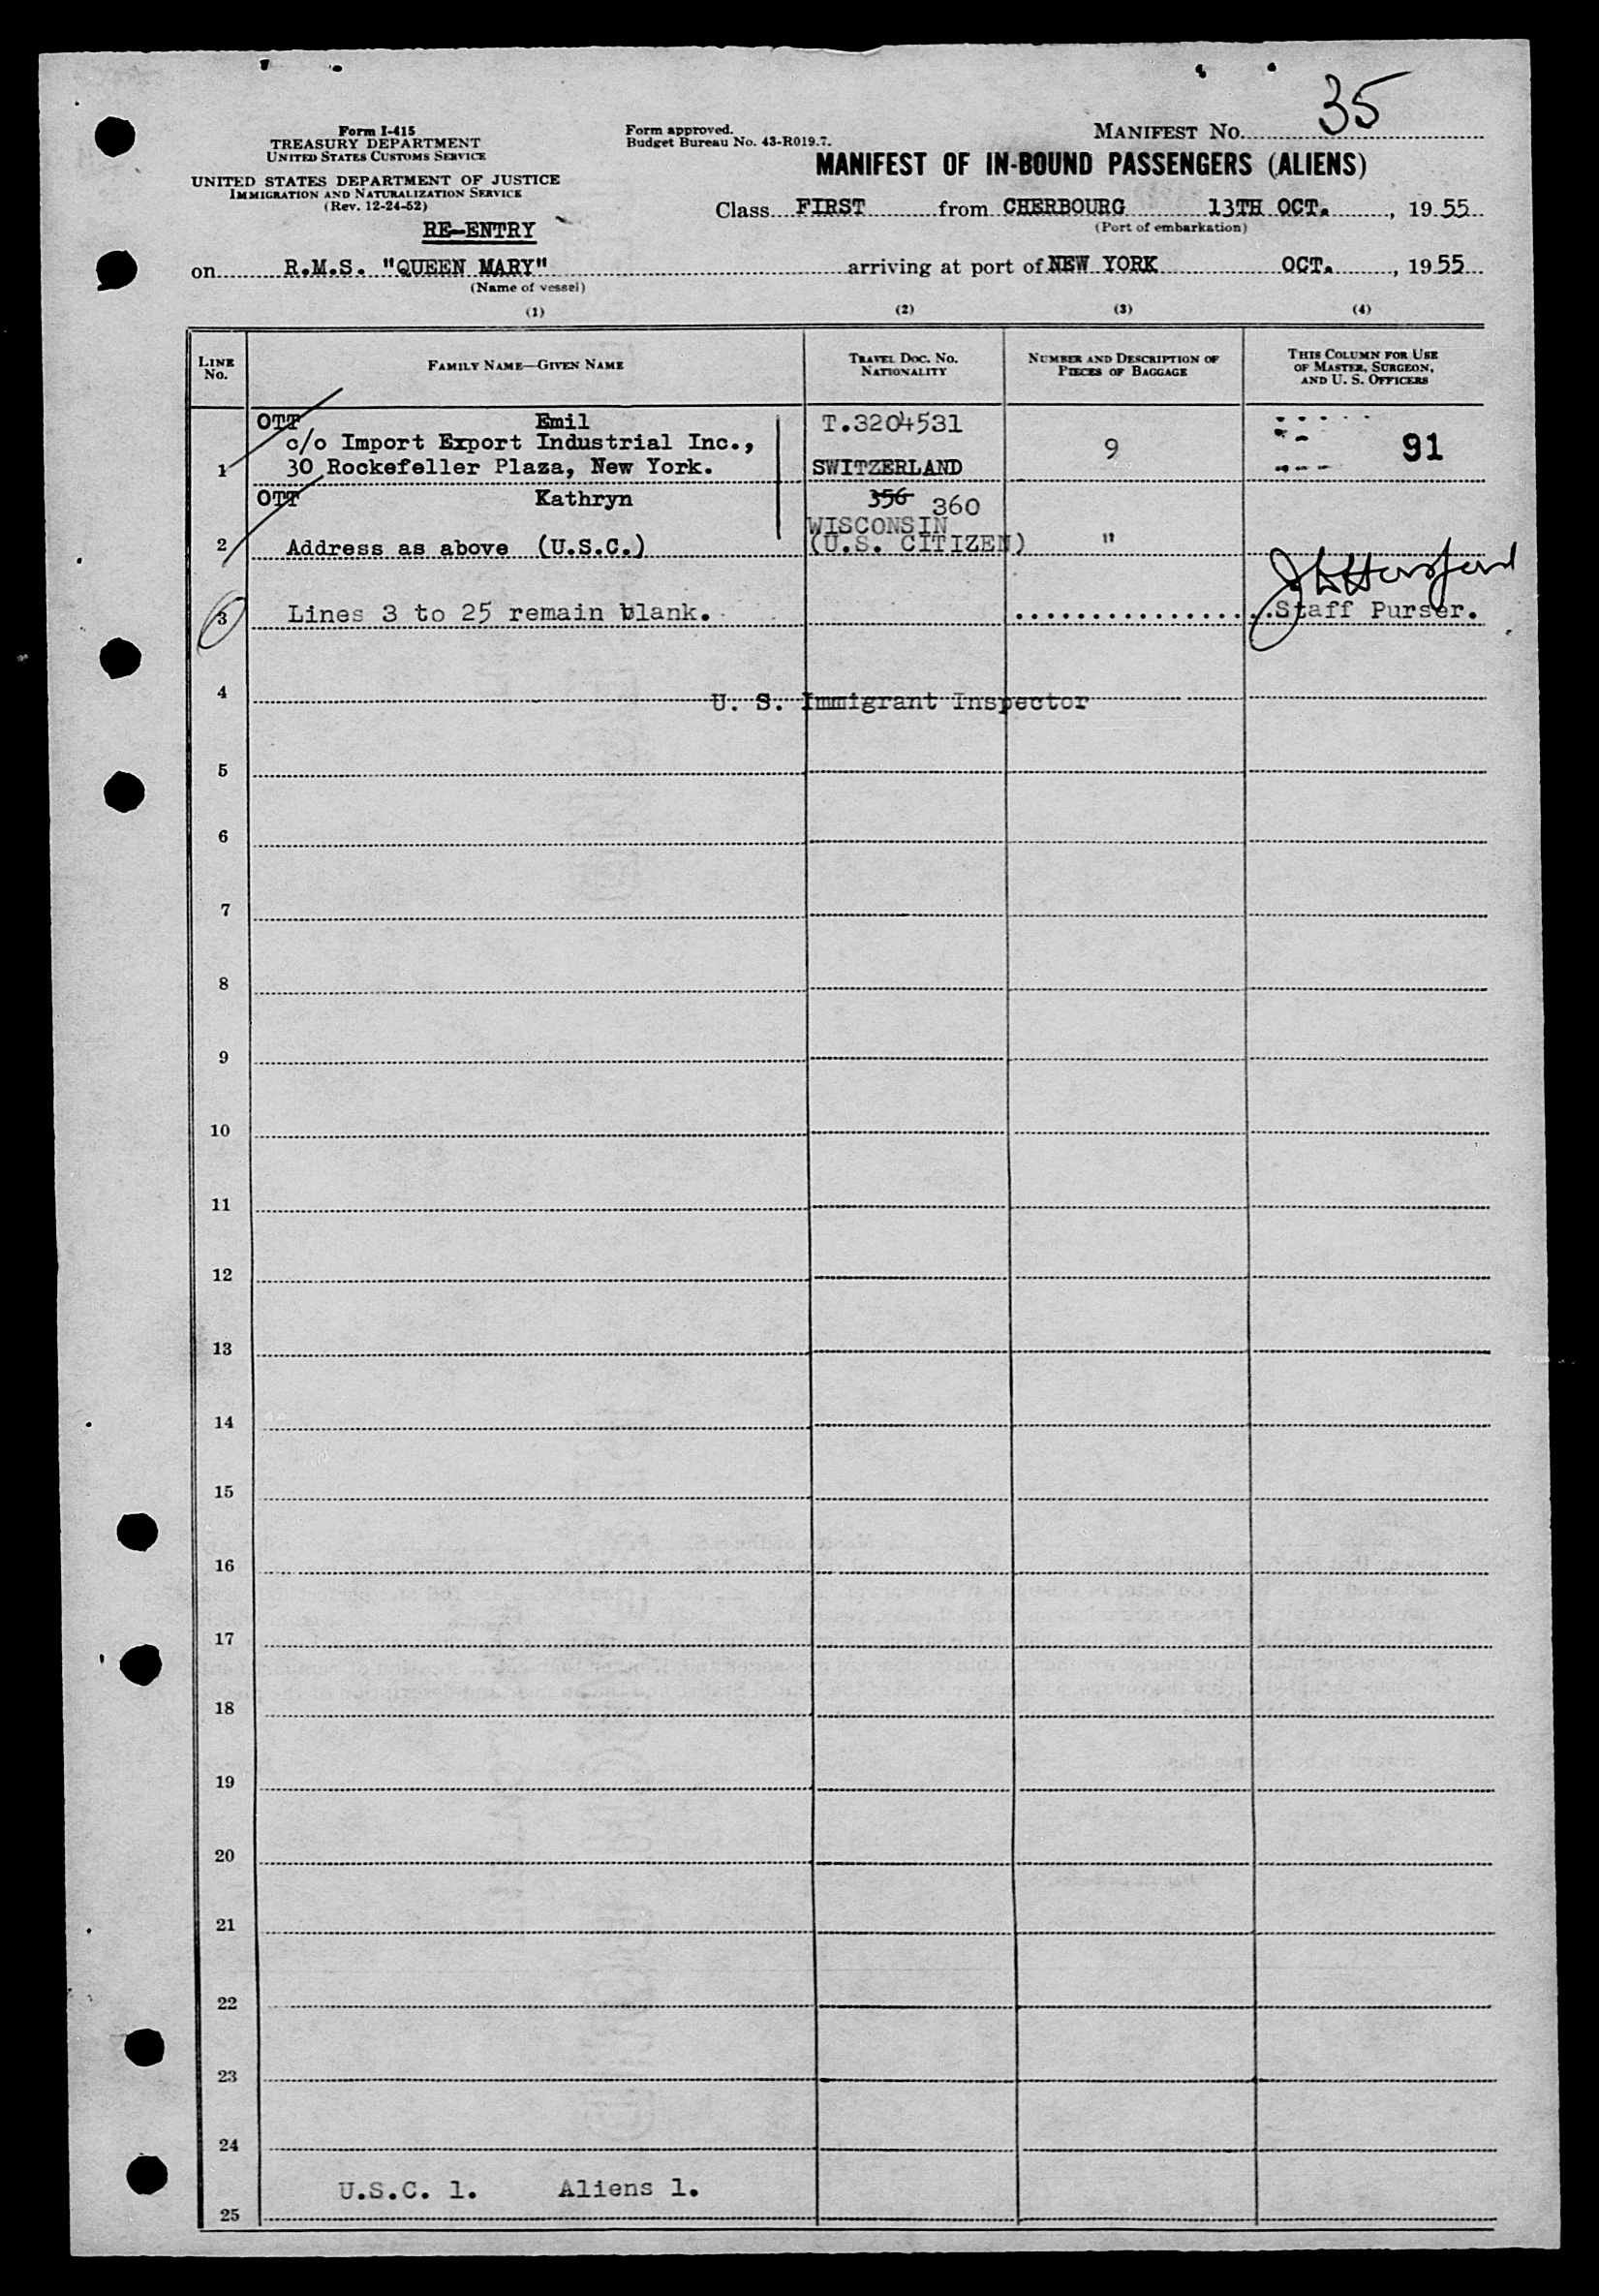 35
Form I-415
TREASURY DEPARTMENT
UNITED STATES CUSTOMS SERVICE
Form approved.
Budget Bureau No. 43-R019.7.
MANIFEST NO.
MANIFEST OF IN-BOUND PASSENGERS (ALIENS)
UNITED STATES DEPARTMENT OF JUSTICE
IMMIGRATION AND NATURALIZATION SERVICE
(Rev. 12-24-52)
RE-ENTRY
Class FIRST from CHERBOURG 13TH OCT., 1955
(Port of embarkation)
on R.M.S. "QUEEN MARY" arriving at port of NEW YORK OCT., 1955
(Name of vessel)
(1) (2) (3) (4)
LINE NO.
FAMILY NAME—GIVEN NAME
TRAVEL DOC. NO.
NATIONALITY
NUMBER AND DESCRIPTION OF
PIECES OF BAGGAGE
THIS COLUMN FOR USE
OF MASTER, SURGEON,
AND U. S. OFFICERS
OTT Emil T.3204531
c/o Import Export Industrial Inc., 9 91
1 30 Rockefeller Plaza, New York. SWITZERLAND
OTT Kathryn 356 360
WISCONSIN
2 Address as above (U.S.C.) (U.S. CITIZEN) "
3 Lines 3 to 25 remain blank. Staff Purser.
4 U. S. Immigrant Inspector
5
6
7
8
9
10
11
12
13
14
15
16
17
18
19
20
21
22
23
24
U.S.C. 1. Aliens 1.
25